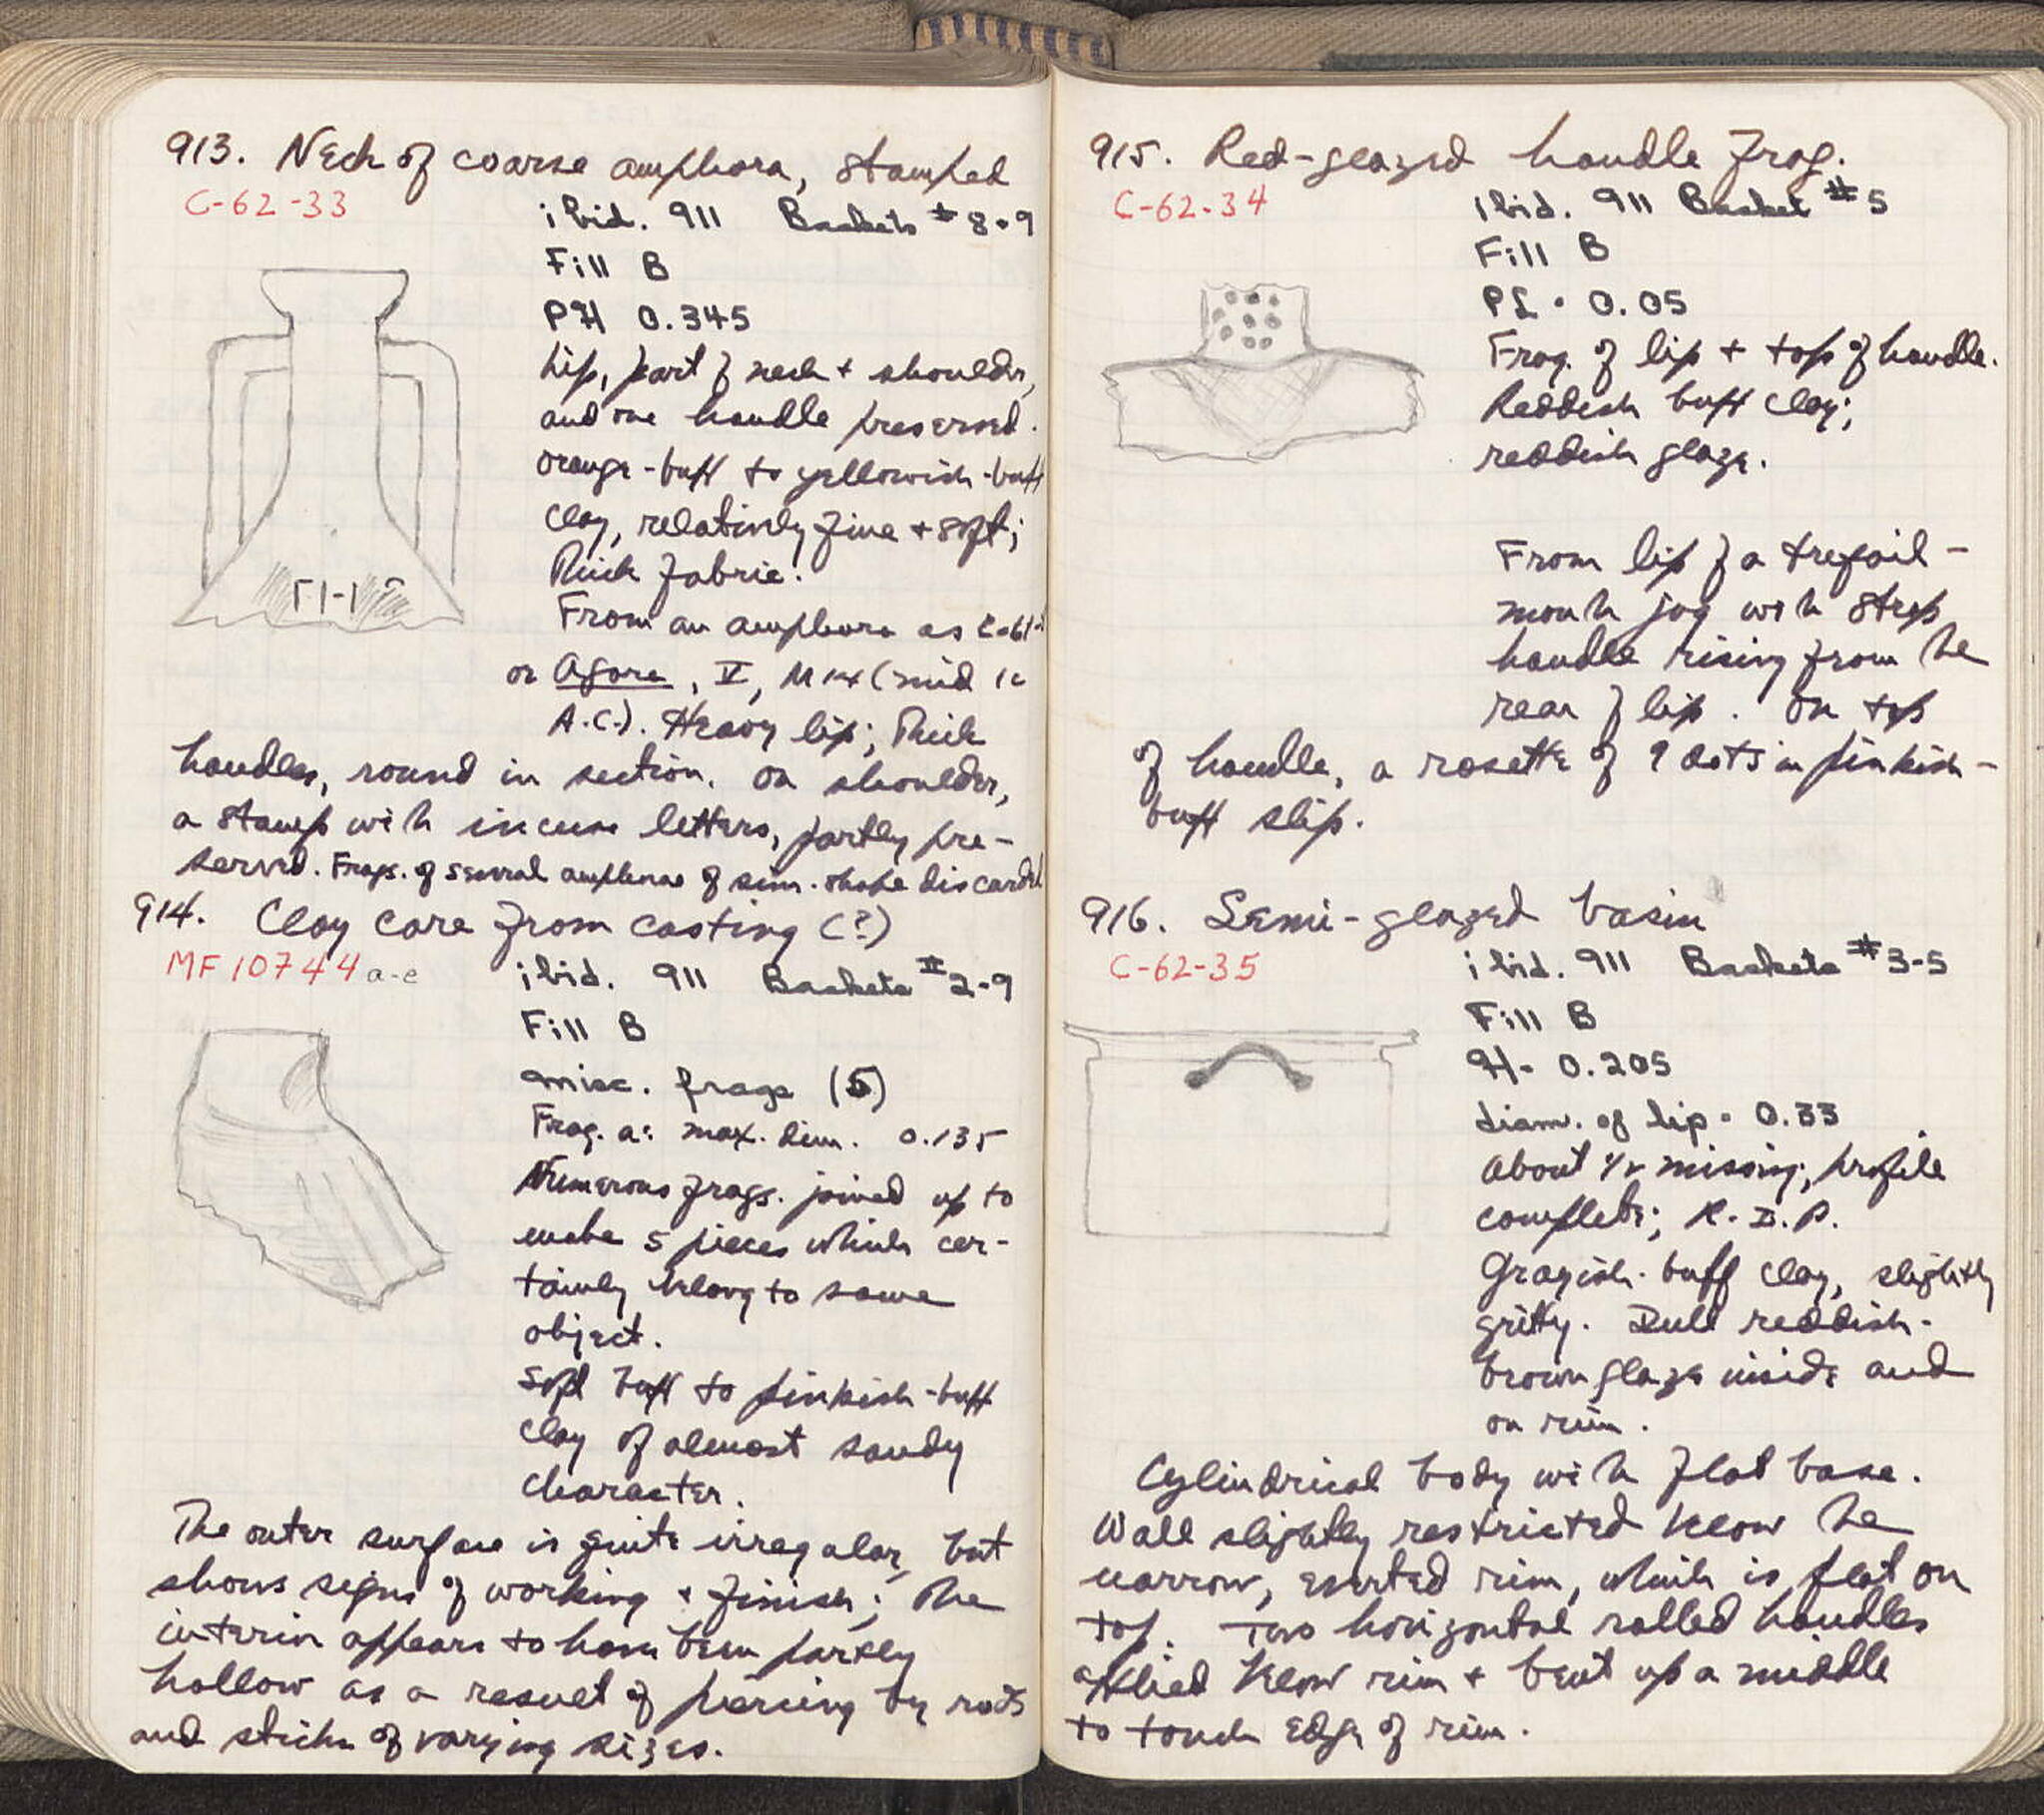 913. Neck of coarse amphora, stamped
C-62-33
ibid. 911 Baskets #8-9
Fill B
PH 0.345
Lip, part of neck + shoulder,
and one handle preserved.
Orange-buff to yellowish-buff
clay, relatively fine + soft;
Thick fabric.
From an amphora as C-61-
or Agora, V, M (mid 1c
A.C.). Heavy lip; Thick
handles, round in section. On shoulder,
a stamp with incuse letters, partly pre-
served. Frags. of several amphorae of sim. shape discarded
914. Clay core from casting (?)
MF 10744 a-e
ibid. 911 Baskets #2-9
Fill B
misc. frags (5)
Frag. a: max. dim. 0.135
Numerous frags. joined up to
make 5 pieces which cer-
tainly belong to same
object.
Soft buff to pinkish-buff
clay of almost sandy
character.
The outer surface is quite irregular, but
shows signs of working + finish; The
interior appears to have been partly
hollow as a result of piercing by rods
and sticks of varying sizes.
915. Red-glazed handle frag.
C-62-34
ibid. 911 Basket #5
Fill B
PL. 0.05
Frag. of lip + top of handle.
Reddish buff clay;
reddish glaze.
From lip of a trefoil-
mouth jug with strap
handle rising from the
rear of lip. On top
of handle, a rosette of 9 dots in pinkish-
buff slip.
916. Semi-glazed basin
C-62-35
ibid. 911 Baskets #3-5
Fill B
H- 0.205
diam. of lip- 0.33
About 1/2 missing; profile
complete; R.I.P.
Grayish-buff clay, slightly
gritty. Dull reddish-
brown glaze inside and
on rim.
Cylindrical body with flat base.
Wall slightly restricted below the
narrow, everted rim, which is flat on
top. Two horizontal rolled handles
applied below rim + bent up a middle
to touch edge of rim.